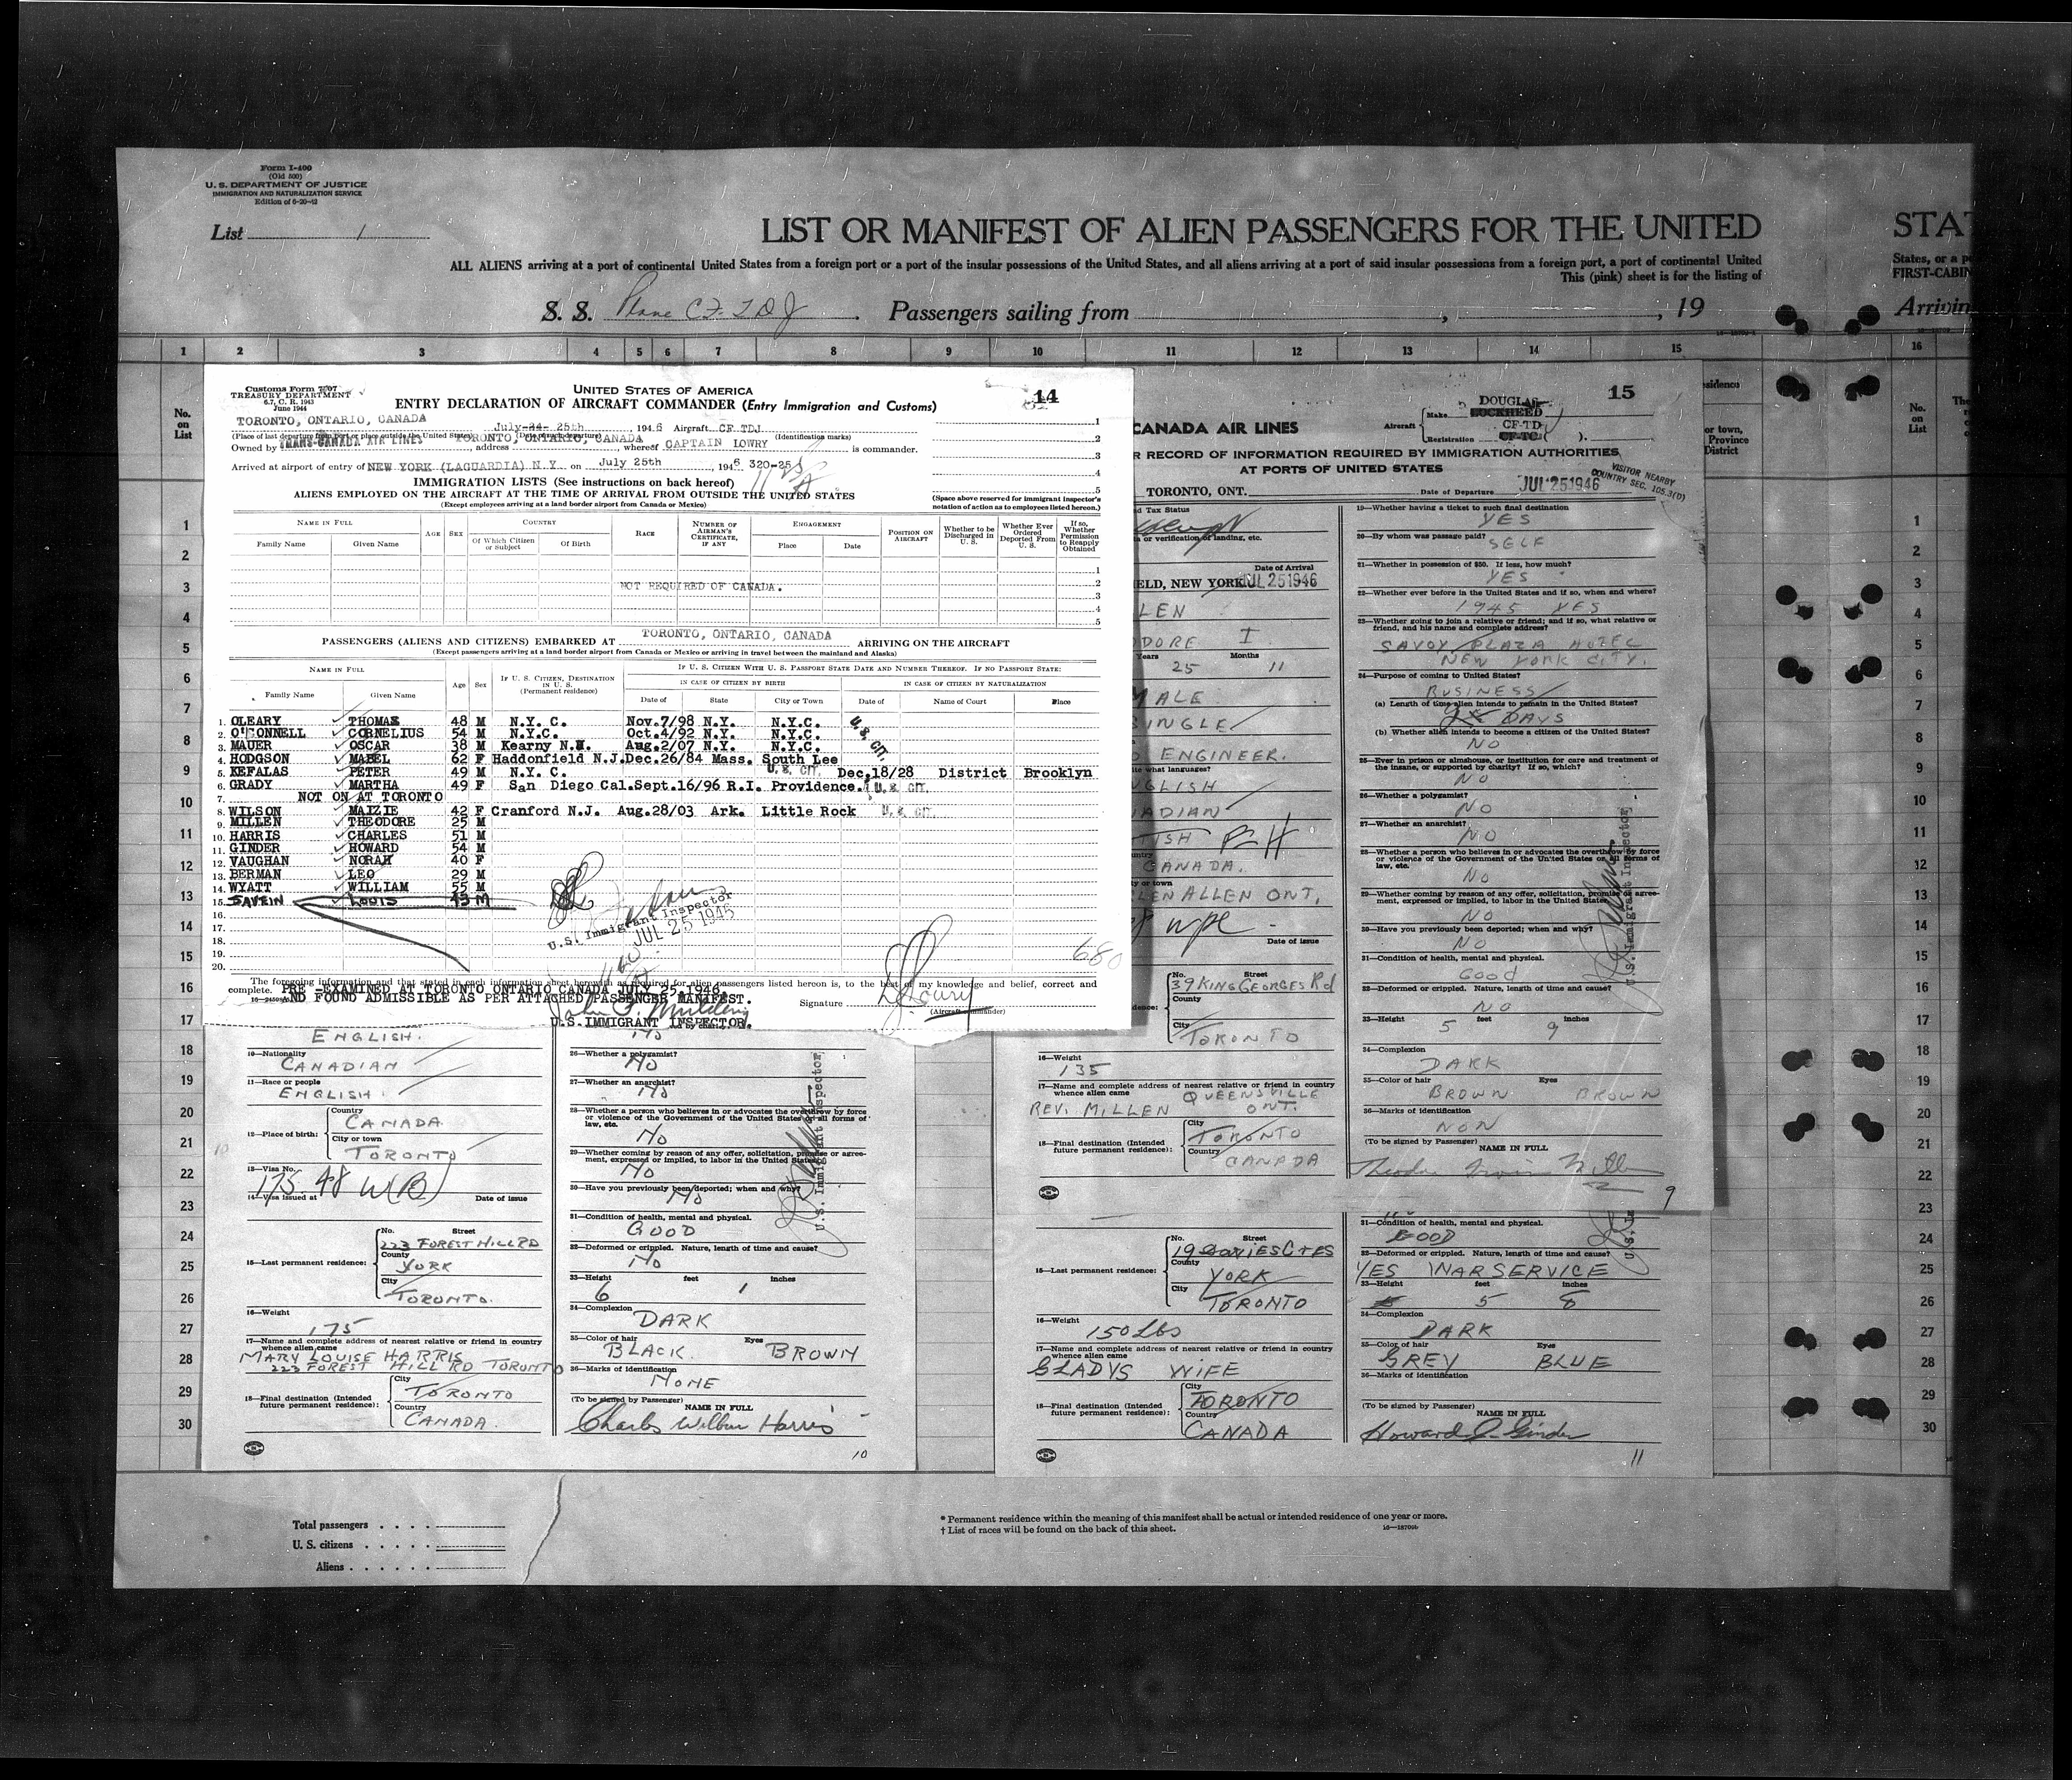 Form I-400
(Old 500)
U. S. DEPARTMENT OF JUSTICE
IMMIGRATION AND NATURALIZATION SERVICE
Edition of 6-20-42
List 1
LIST OR MANIFEST OF ALIEN PASSENGERS FOR THE UNITED
STAT
ALL ALIENS arriving at a port of continental United States from a foreign port or a port of the insular possessions of the United States, and all aliens arriving at a port of said insular possessions from a foreign port, a port of continental United
States, or a po
This (pink) sheet is for the listing of
FIRST-CABIN
S. S. Plane CF. TDJ. Passengers sailing from , , 19
Arrivin
1 2 3 4 5 6 7 8 9 10 11 12 13 14 15 16
No. on List
Customs Form 7507
TREASURY DEPARTMENT
6.7, C. R. 1943
June 1944
UNITED STATES OF AMERICA
14
ENTRY DECLARATION OF AIRCRAFT COMMANDER (Entry Immigration and Customs)
TORONTO, ONTARIO, CANADA July 24 25th, 1946 Aircraft CF TDJ
(Place of last departure from port or place outside the United States) (Date of such departure) (Identification marks)
Owned by TRANS-CANADA AIR LINES, address TORONTO, ONTARIO, CANADA, whereof CAPTAIN LOWRY is commander.
Arrived at airport of entry of NEW YORK (LAGUARDIA) N.Y. on July 25th, 1946 320-25
IMMIGRATION LISTS (See instructions on back hereof)
ALIENS EMPLOYED ON THE AIRCRAFT AT THE TIME OF ARRIVAL FROM OUTSIDE THE UNITED STATES
(Except employees arriving at a land border airport from Canada or Mexico)
(Space above reserved for immigrant inspector's notation of action as to employees listed hereon.)
NAME IN FULL
Family Name Given Name
AGE SEX
COUNTRY
Of Which Citizen or Subject Of Birth
RACE
NUMBER OF AIRMAN'S CERTIFICATE, IF ANY
ENGAGEMENT
Place Date
POSITION ON AIRCRAFT
Whether to be Discharged in U. S.
Whether Ever Ordered Deported From U. S.
If so, Whether Permission to Reapply Obtained
NOT REQUIRED OF CANADA.
PASSENGERS (ALIENS AND CITIZENS) EMBARKED AT TORONTO, ONTARIO, CANADA ARRIVING ON THE AIRCRAFT
(Except passengers arriving at a land border airport from Canada or Mexico or arriving in travel between the mainland and Alaska)
NAME IN FULL
Family Name Given Name Age Sex
IF U. S. CITIZEN, DESTINATION IN U. S. (Permanent residence)
IF U. S. CITIZEN WITH U. S. PASSPORT STATE DATE AND NUMBER THEREOF. IF NO PASSPORT STATE:
IN CASE OF CITIZEN BY BIRTH
IN CASE OF CITIZEN BY NATURALIZATION
Date of State City or Town Date of Name of Court Place
1. OLEARY THOMAS 48 M N.Y. C. Nov.7/98 N.Y. N.Y.C. U.S. CIT.
2. O'CONNELL CORNELIUS 54 M N.Y.C. Oct.4/92 N.Y. N.Y.C.
3. MAUER OSCAR 38 M Kearny N.J. Aug.2/07 N.Y. N.Y.C.
4. HODGSON MABEL 62 F Haddonfield N.J. Dec.26/84 Mass. South Lee
5. KEFALAS PETER 49 M N.Y. C. U.S. CIT. Dec.18/28 District Brooklyn
6. GRADY MARTHA 49 F San Diego Cal. Sept.16/96 R.I. Providence. U.S. CIT.
7. NOT ON AT TORONTO
8. WILSON MAIZIE 42 F Cranford N.J. Aug.28/03 Ark. Little Rock U.S. CIT.
9. MILLEN THEODORE 25 M
10. HARRIS CHARLES 51 M
11. GINDER HOWARD 54 M
12. VAUGHAN NORAH 40 F
13. BERMAN LEO 29 M
14. WYATT WILLIAM 55 M
15. SAVEIN LOUIS 43 M
16.
17.
18.
19.
20.
U.S. Immigrant Inspector
JUL 25 1946
680
The foregoing information and that stated in each information sheet herewith as required for alien passengers listed hereon is, to the best of my knowledge and belief, correct and complete.
PRE-EXAMINED AT TORONTO ONTARIO CANADA JULY 25.1946.
AND FOUND ADMISSIBLE AS PER ATTACHED PASSENGER MANIFEST.
Signature
(Aircraft commander)
U.S. IMMIGRANT INSPECTOR.
15
CANADA AIR LINES
Aircraft Make DOUGLAS LOCKHEED
Registration CF-TD CF-TC ( ).
R RECORD OF INFORMATION REQUIRED BY IMMIGRATION AUTHORITIES
AT PORTS OF UNITED STATES
TORONTO, ONT. Date of Departure JUL 25 1946
VISITOR NEARBY
COUNTRY SEC. 105.3(D)
d Tax Status
a or verification of landing, etc.
Date of Arrival
ELD, NEW YORK JUL 25 1946
LEN
DORE I
Years 25 Months 11
MALE
SINGLE
ENGINEER.
te what languages?
GLISH
ADIAN
CANADA.
LEN ALLEN ONT.
Date of issue
No. Street
39 KING GEORGES Rd
County
City
TORONTO
16—Weight
135
17—Name and complete address of nearest relative or friend in country whence alien came
REV. MILLEN QUEENSVILLE ONT.
18—Final destination (Intended future permanent residence):
City TORONTO
Country CANADA
19—Whether having a ticket to such final destination
YES
20—By whom was passage paid?
SELF
21—Whether in possession of $50. If less, how much?
YES
22—Whether ever before in the United States and if so, when and where?
1945 YES
23—Whether going to join a relative or friend; and if so, what relative or friend, and his name and complete address?
SAVOY PLAZA HOTEL
NEW YORK CITY.
24—Purpose of coming to United States?
BUSINESS
(a) Length of time alien intends to remain in the United States?
DAYS
(b) Whether alien intends to become a citizen of the United States?
NO
25—Ever in prison or almshouse, or institution for care and treatment of the insane, or supported by charity? If so, which?
NO
26—Whether a polygamist?
NO
27—Whether an anarchist?
NO
28—Whether a person who believes in or advocates the overthrow by force or violence of the Government of the United States or all forms of law, etc.
NO
29—Whether coming by reason of any offer, solicitation, promise or agreement, expressed or implied, to labor in the United States
NO
30—Have you previously been deported; when and why?
NO
31—Condition of health, mental and physical.
GOOD
32—Deformed or crippled. Nature, length of time and cause?
NO
33—Height 5 feet 9 inches
34—Complexion
DARK
35—Color of hair BROWN Eyes BROWN
36—Marks of identification
NON
(To be signed by Passenger) NAME IN FULL
U.S. Immigrant Inspector
9
ENGLISH.
10—Nationality
CANADIAN
11—Race or people
ENGLISH.
12—Place of birth:
Country CANADA.
City or town TORONTO
13—Visa No.
14—Visa issued at Date of issue
15—Last permanent residence:
No. Street
223 FOREST HILL RD
County YORK
City TORONTO.
16—Weight
175
17—Name and complete address of nearest relative or friend in country whence alien came
MARY LOUISE HARRIS
223 FOREST HILL RD TORONTO
18—Final destination (Intended future permanent residence):
City TORONTO
Country CANADA.
26—Whether a polygamist?
NO
27—Whether an anarchist?
NO
28—Whether a person who believes in or advocates the overthrow by force or violence of the Government of the United States or all forms of law, etc.
NO
29—Whether coming by reason of any offer, solicitation, promise or agreement, expressed or implied, to labor in the United States
NO
30—Have you previously been deported; when and why?
NO
31—Condition of health, mental and physical.
GOOD
32—Deformed or crippled. Nature, length of time and cause?
NO
33—Height 6 feet 1 inches
34—Complexion
DARK
35—Color of hair BLACK Eyes BROWN
36—Marks of identification
NONE
(To be signed by Passenger) NAME IN FULL
Charles Wilbur Harris
U.S. Immigrant Inspector
10
No. Street
15—Last permanent residence:
County YORK
City TORONTO
16—Weight
150 Lbs
17—Name and complete address of nearest relative or friend in country whence alien came
GLADYS WIFE
18—Final destination (Intended future permanent residence):
City TORONTO
Country CANADA
31—Condition of health, mental and physical.
GOOD
32—Deformed or crippled. Nature, length of time and cause?
YES WAR SERVICE
33—Height 5 feet 8 inches
34—Complexion
DARK
35—Color of hair GREY Eyes BLUE
36—Marks of identification
(To be signed by Passenger) NAME IN FULL
Howard J. Ginder
11
Total passengers
U. S. citizens
Aliens
* Permanent residence within the meaning of this manifest shall be actual or intended residence of one year or more.
† List of races will be found on the back of this sheet.